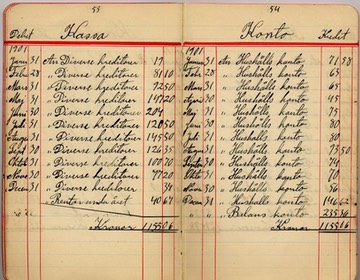 55
Debet Kassa
1901
Janu 31 An Diverse kreditorer 17
Feb 28 " Diverse kreditorer 81 10
Mars 31 " Diverse kreditorer 72 50
Maj 31 " Diverse kreditorer 147 20
Juni 30 " Diverse kreditorer 204
Juli 31 " Diverse kreditorer 120 50
Augu 31 " Diverse kreditorer
Sept 30 " Diverse kreditorer 126 35
Okto 31 " Diverse kreditorer 100 70
Nove 30 " Diverse kreditorer 77 20
Dece 31 " Diverse kreditorer
" " " Räntor under året 40 67
Kronor 1155 06
54
Konto Kredit
1901
Janu 31 An Hushålls konto 71 58
Feb 28 " Hushålls konto 65
Mars 31 " Hushålls konto 65
April 30 " Hushålls konto 45
Maj 31 " Hushålls konto 75
Juni 30 " Hushålls konto 80
Juli 31 " Hushålls konto 80
Augu 31 " Hushålls konto 73 50
Sept 30 " Hushålls konto 74
Okt 31 " Hushålls konto 70
Nove 30 " Hushålls konto 56
Dece 31 " Hushålls konto 146 62
" " " Balans konto 235 36
Kronor 1155 06